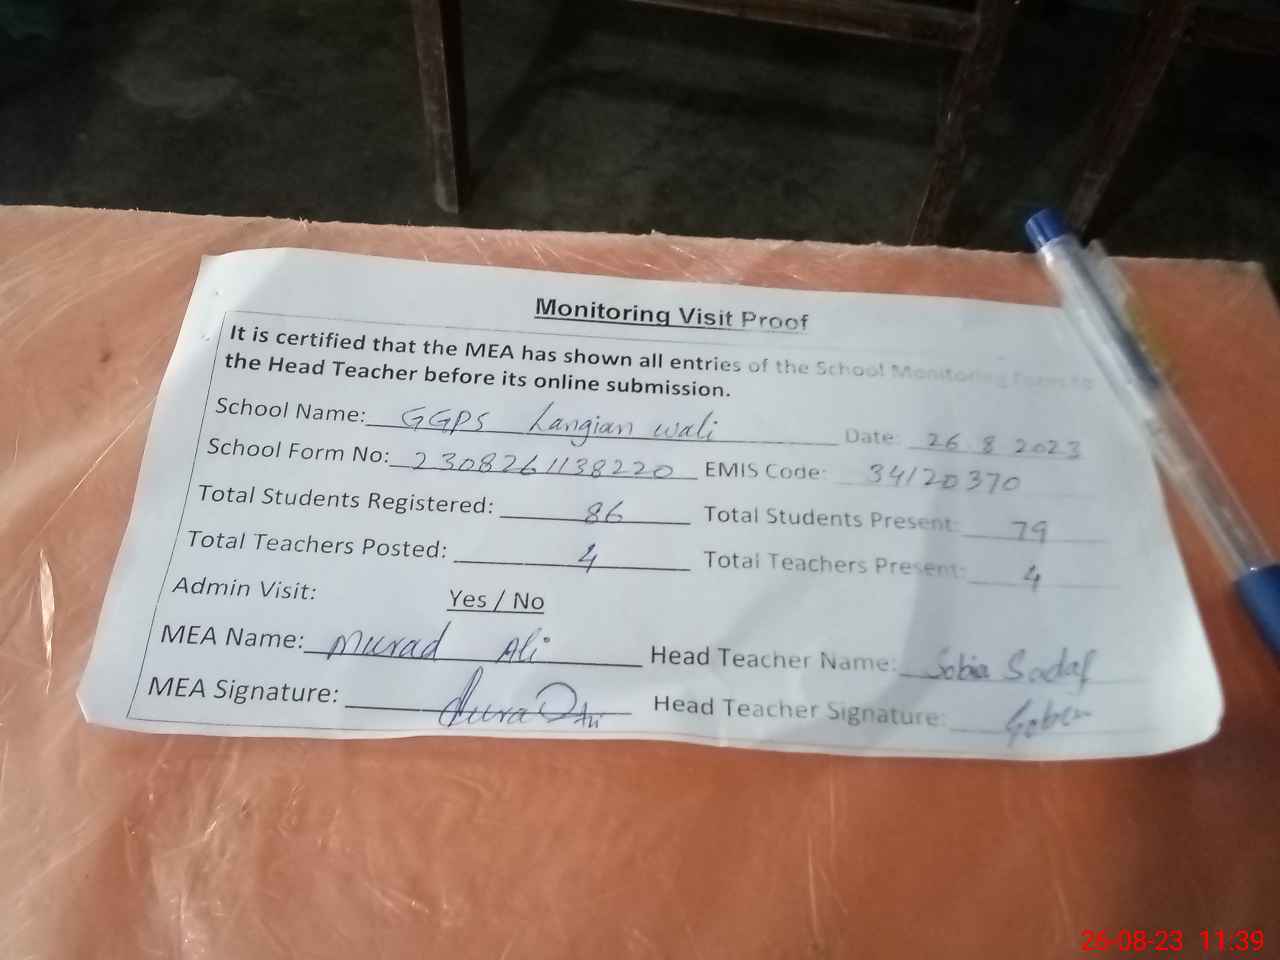 Monitoring Visit Proof
It is certified that the MEA has shown all entries of the School Monitoring Form to
the Head Teacher before its online submission.
School Name: GGPS Langian wali Date: 26.8 2023
School Form No: 2308261138220 EMIS Code: 34120370
Total Students Registered: 86 Total Students Present: 79
Total Teachers Posted: 4 Total Teachers Present: 4
Admin Visit: Yes / No
MEA Name: Murad Ali Head Teacher Name: Sobia Sadaf
MEA Signature: Head Teacher Signature:
26-08-23 11:39